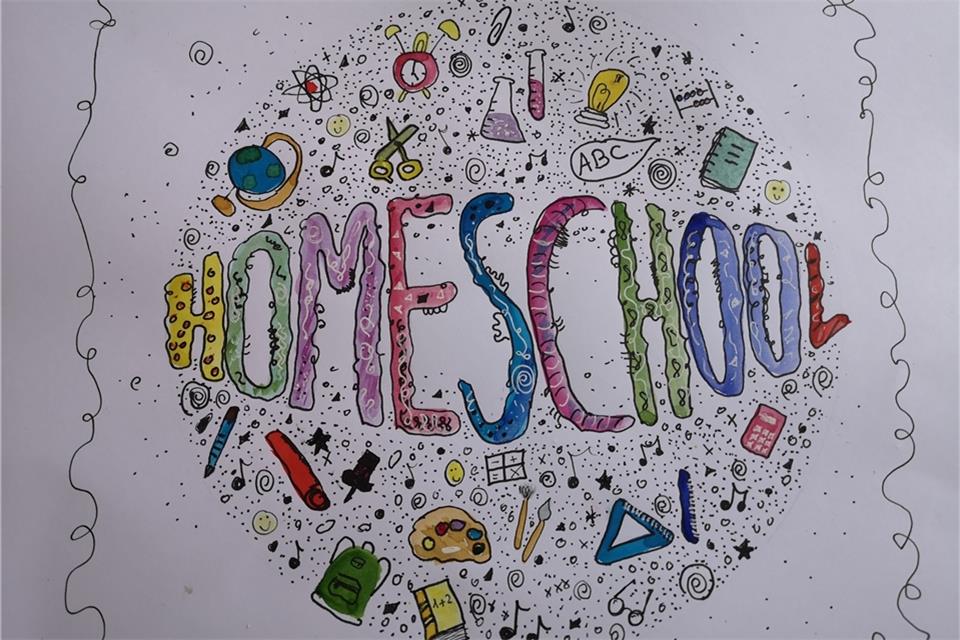 ABC
HOMESCHOOL
1+2